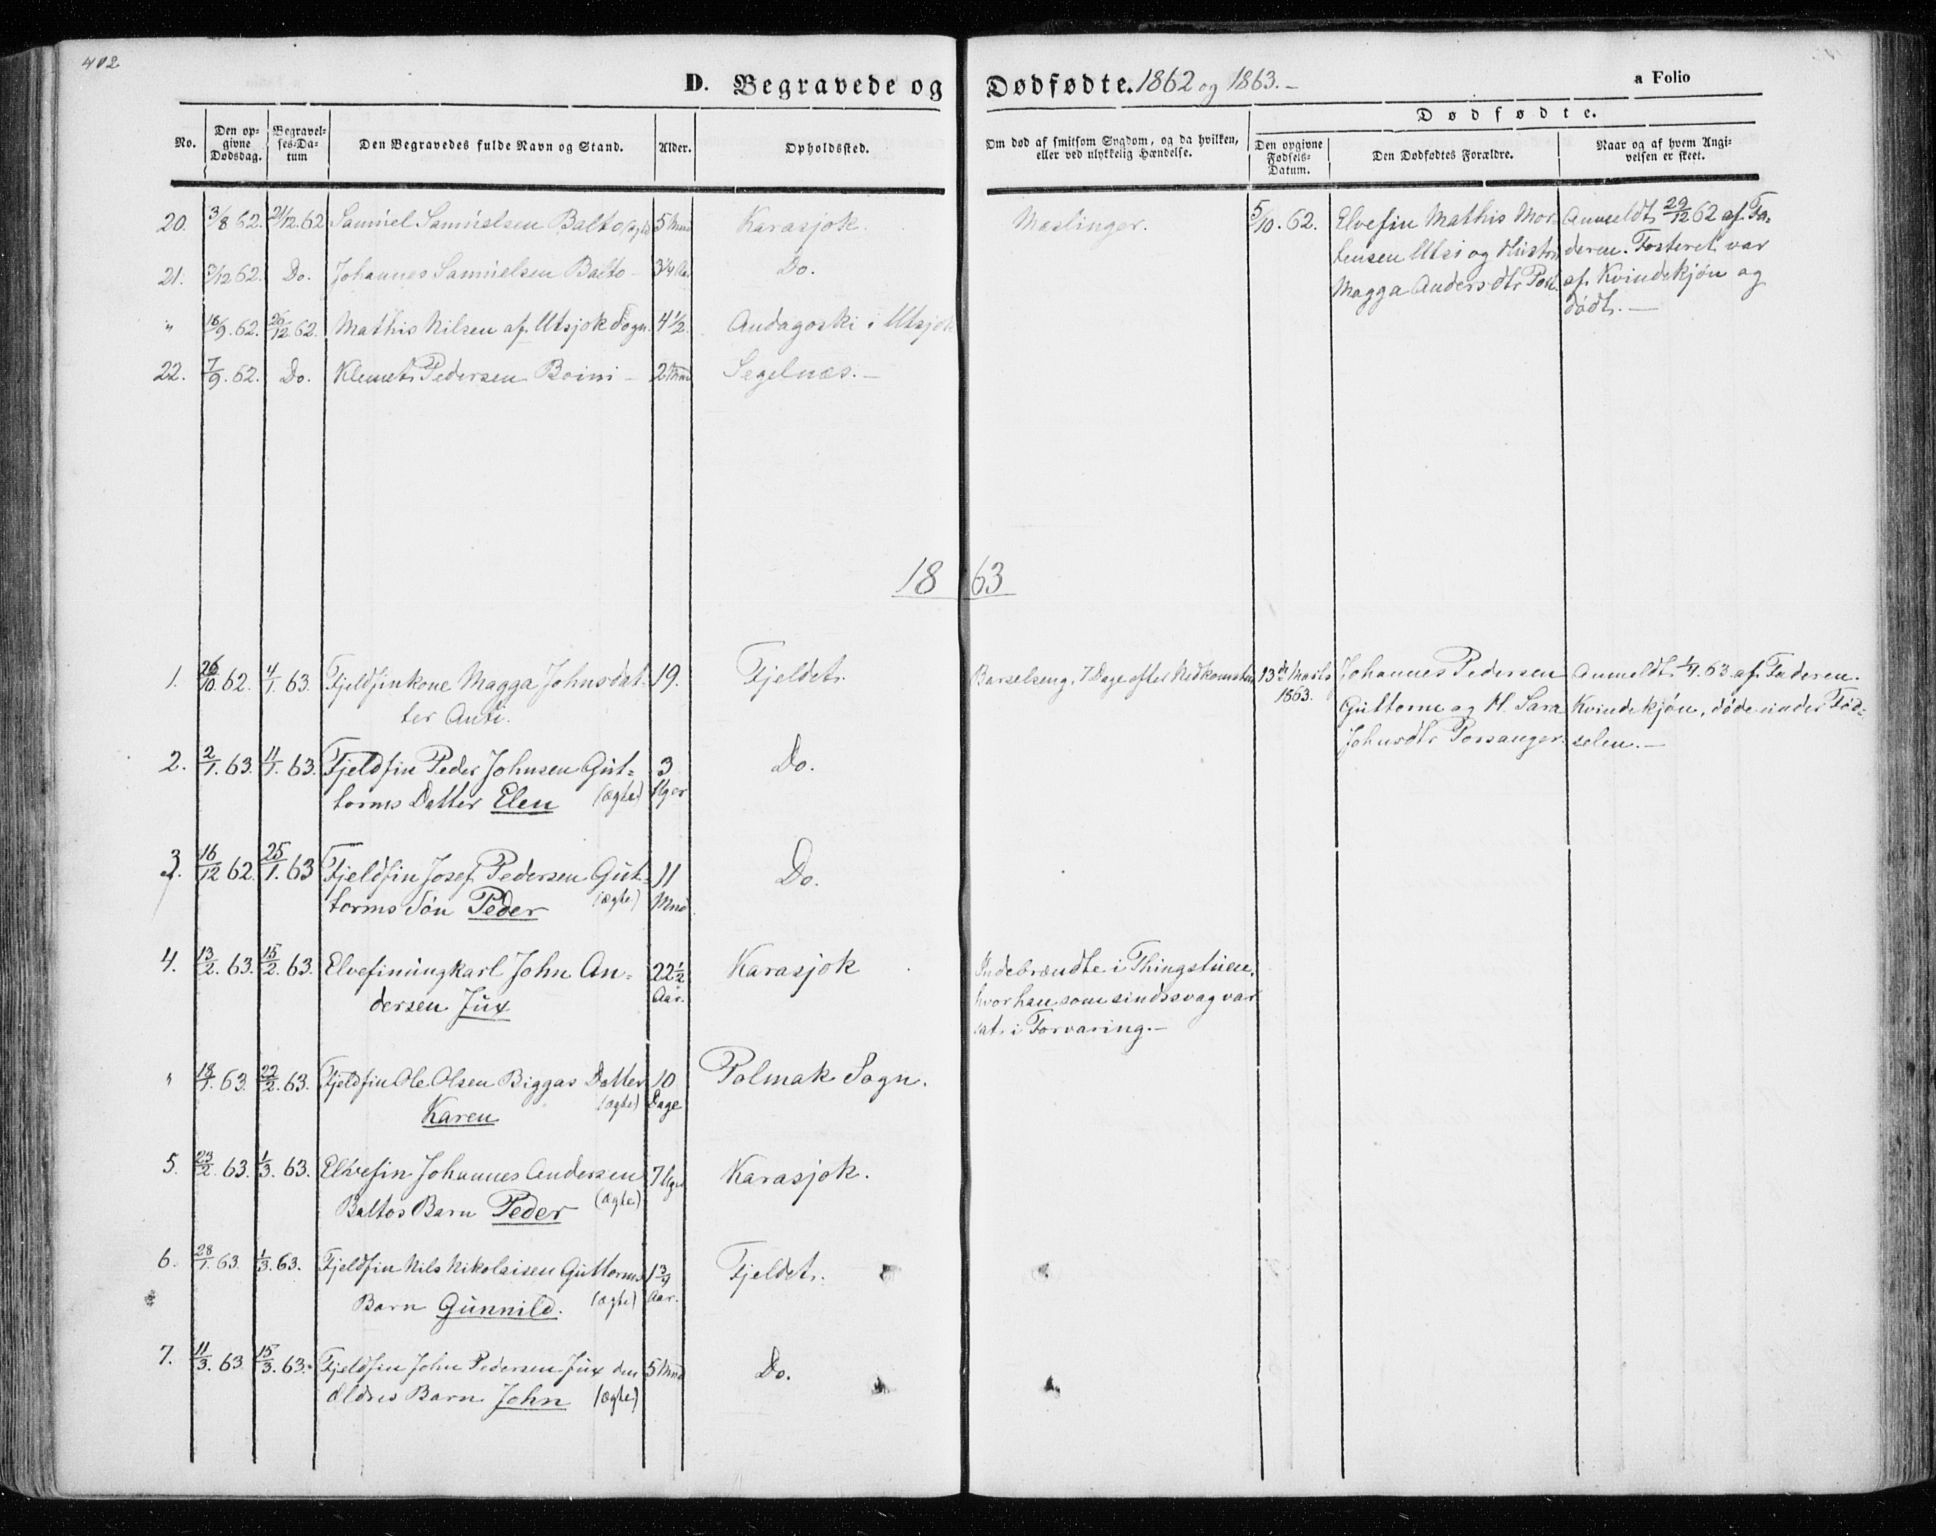 402
D. Begravede og Dødfødte. 1862 og 1863.-
a Folio
No.
Den opgivne Dødsdag.
Begravelses-Datum
Den Begravedes fulde Navn og Stand.
Alder.
Opholdssted.
Om død af smitsom Sygdom, og da hvilken,
eller ved ulykkelig Hændelse.
Dødfødte.
Den opgivne Fødsels-Datum.
Den Dødfødtes Forældre.
Naar og af hvem Angivelsen er skeet.
20. 3/8 62. 21/12 62 Samuel Samuelsen Balto (ægte) 5 Mnd Karasjok. Meslinger.
21. 7/12 62. Do. Johannes Samuelsen Balto - 3 1/4 Aar Do.
" 18/9. 62. 26/12 62. Mathis Nilsen af Utsjok Sogn. 4 1/2. Andagoski i Utsjok
22. 7/9. 62. Do. Klemet Pedersen Boini - 2 Mnd Segelnæs.-
5/10. 62.
Elvefin Mathis Mor-
tensen Utsi og Hustru
Magga Andersdtr Pork
Anmeldt 29/12 62 af Fa-
deren. Fosteret var
af Kvindekjøn og
dødt.-
1863
1. 26/10 62. 4/1 63. Fjeldfinkone Magga Johnsdat- 19. Fjeldet. Barselseng, 7 Dage efter Nedkomsten
ter Anti.
13de Marts
1863.
Johannes Pedersen
Guttorm og H. Sara
Johnsdtr Porsanger.
Anmeldt 1/4. 63 af Faderen.
Kvindekjøn, døde under Fød-
selen.-
2. 2/1. 63. 11/1. 63. Fjeldfin Peder Johnsen Gut- 3 Do.
torms Datter Elen (ægte) Uger
3. 16/12 62. 25/1. 63 Fjeldfin Josef Pedersen Gut- 11 Do.
torms Søn Peder (ægte) Mnd
4. 13/2. 63. 15/2. 63. Elvefinungkarl John An- 22 1/2 Karasjok
dersen Jux Aar.
Indebrændte i Thingstuen,
hvor han som sindssvag var
sat i Forvaring.-
" 18/1. 63. 22/2. 63. Fjeldfin Ole Olsen Biggas Datter 10 Polmak Sogn.
Karen (ægte) Dage
5. 23/2. 63. 1/3. 63. Elvefin Johannes Andersen 7 Uger Karasjok.
Baltos Barn Peder (ægte)
6. 28/1. 63. 1/3. 63. Fjeldfin Nils Nikolaisen Guttorms 1 3/4 Fjeldet.
Barn Gunnild. (ægte) Aar.
7. 11/3. 63. 15/3. 63. Fjeldfin John Pedersen Jux den 5 Mnd Do.
Ældres Barn John (ægte)